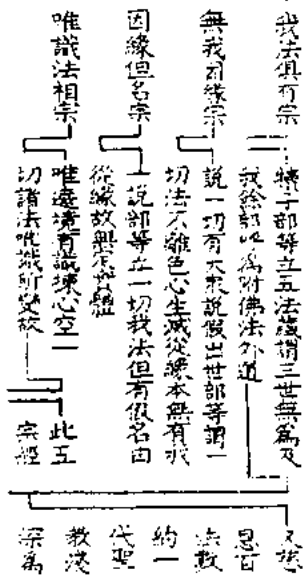 我法俱有宗
犢子部等立五法藏謂三世無為及
我餘部呼為附佛法外道
無我因緣宗
說一切有大眾說假出世部等謂一
切法不離色心生滅從緣本無有我
因緣但名宗
一說部等立一切我法但有假名由
從緣故無實體
唯識法相宗
唯遮境有識揀心空一
切諸法唯識所變故
此五
宗經
又慈
恩百
法數
約一
代聖
教淺
深為